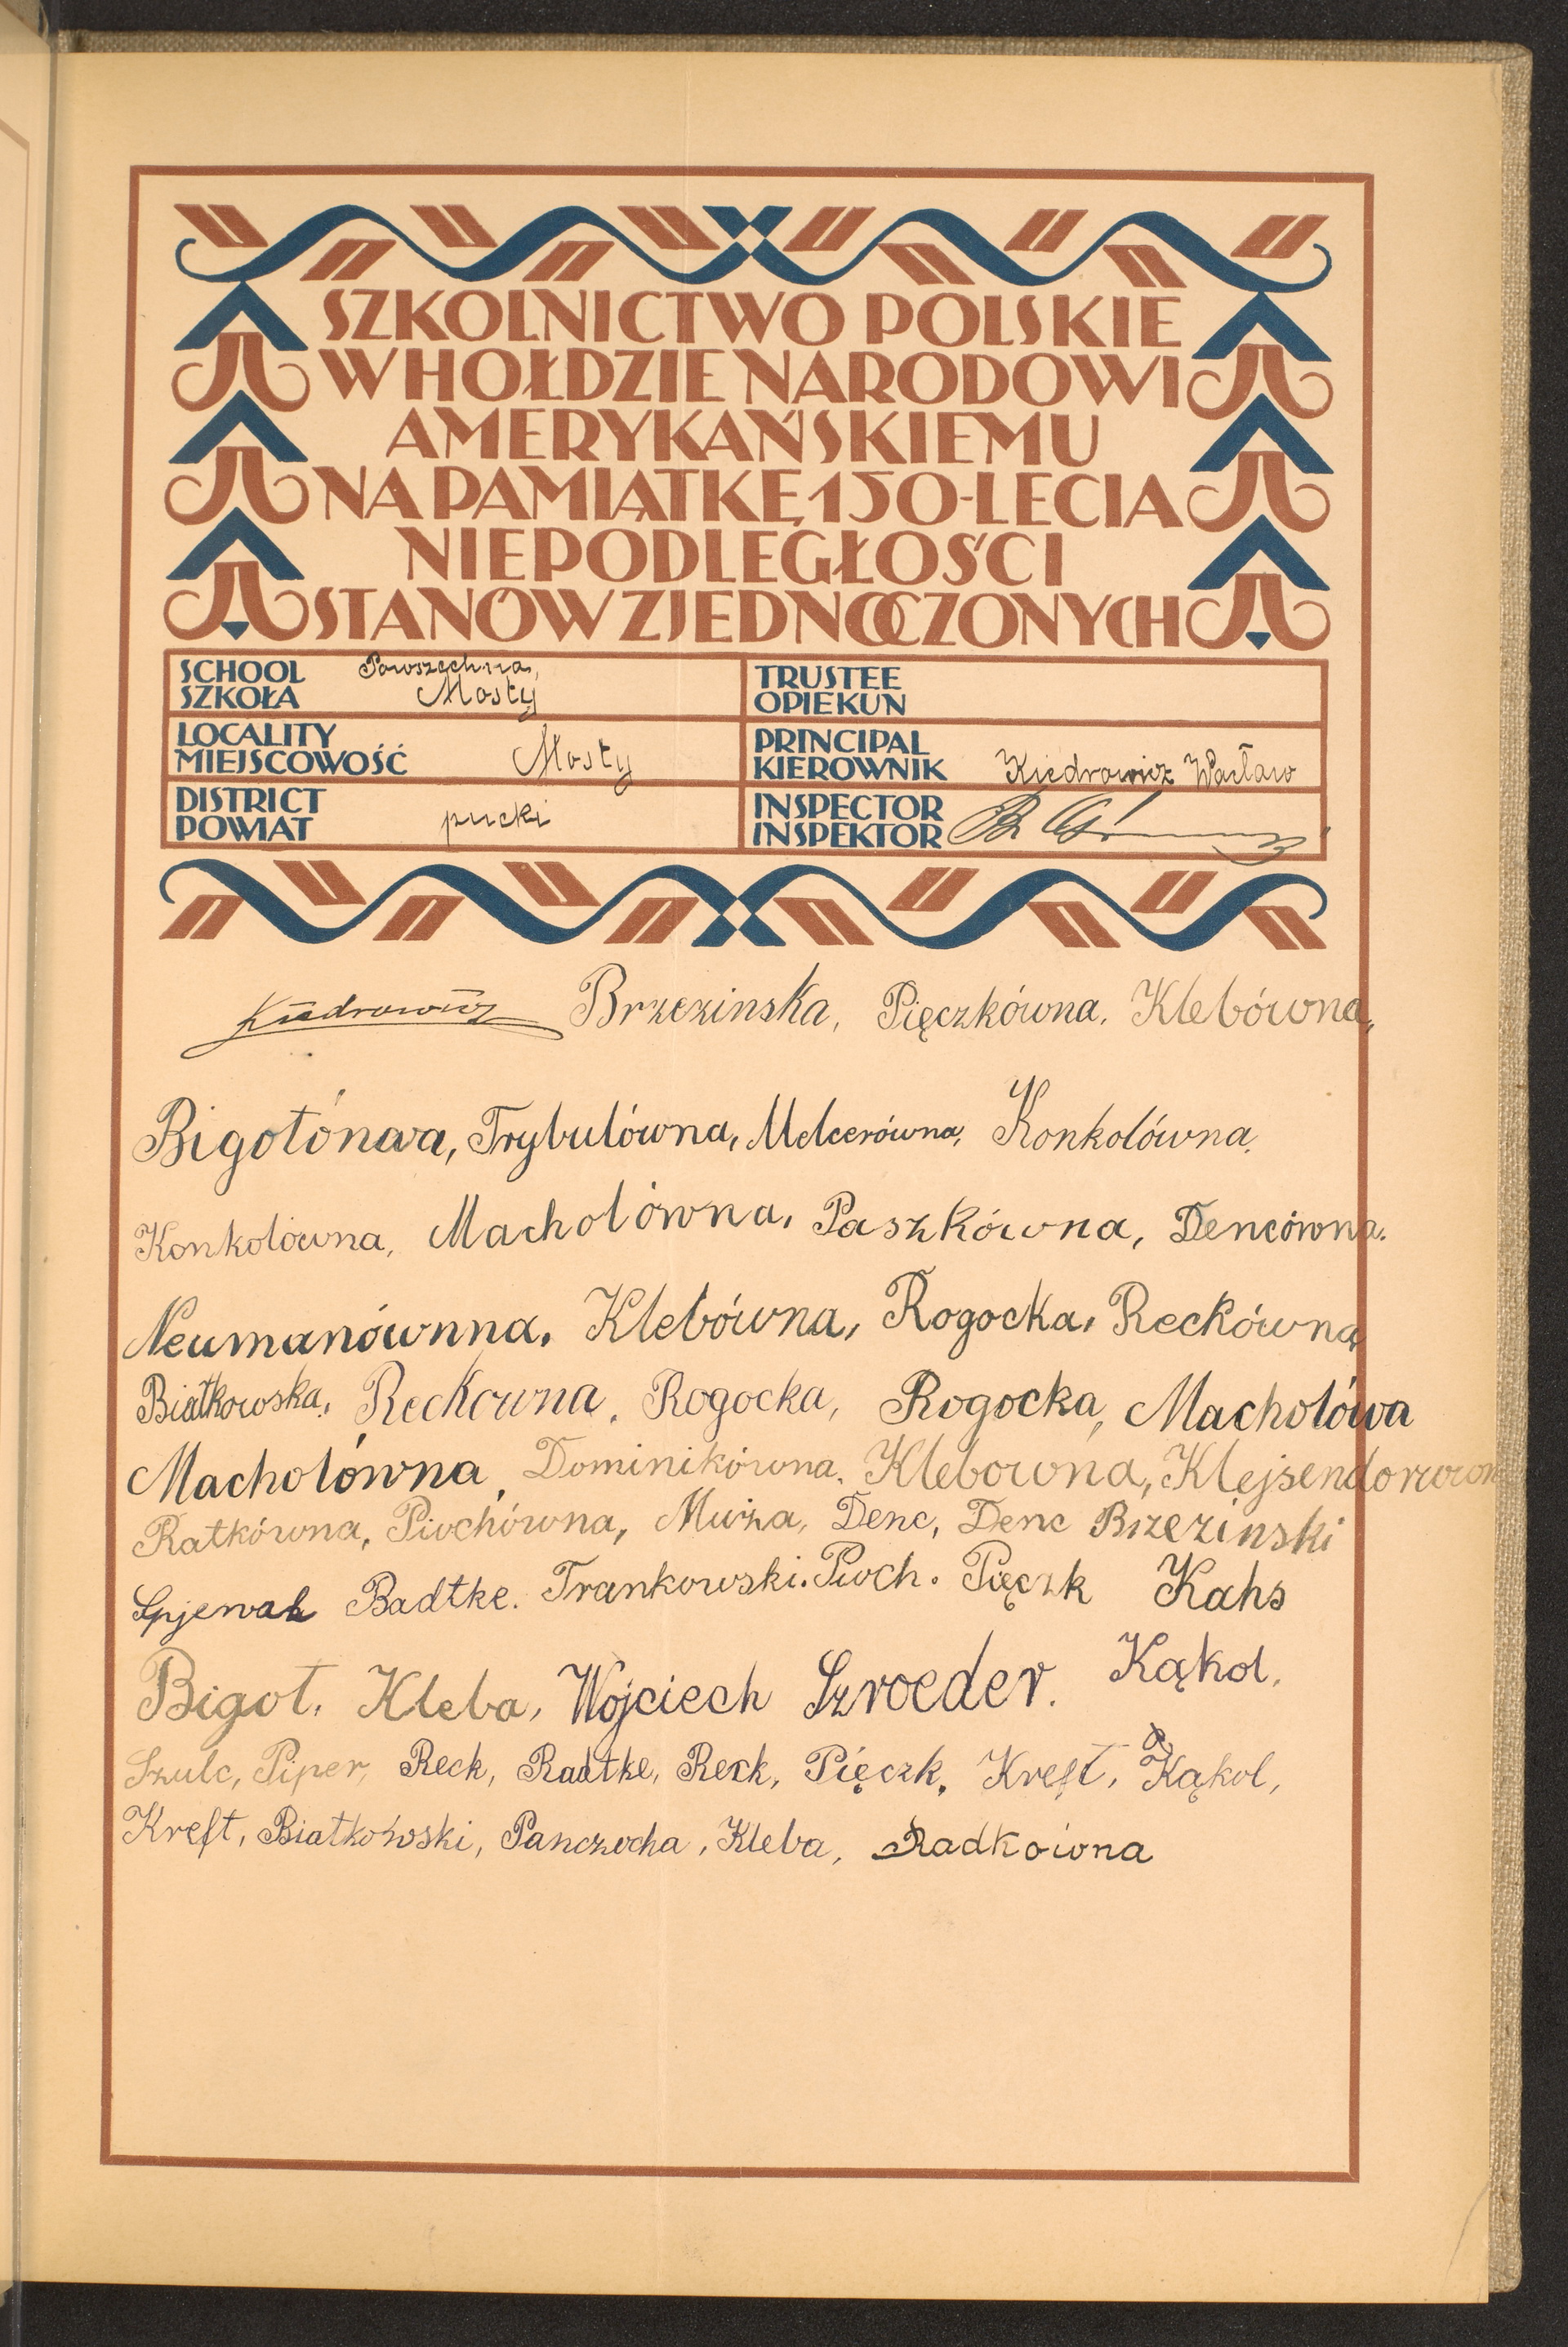 SZKOLNICTWO POLSKIE
W HOŁDZIE NARODOWI
AMERYKAŃSKIEMU
NA PAMIĄTKĘ 150-LECIA
NIEPODLEGŁOŚCI
STANÓW ZJEDNOCZONYCH
SCHOOL
SZKOŁA
Powszechna,
Mosty
TRUSTEE
OPIEKUN
LOCALITY
MIEJSCOWOŚĆ
Mosty
PRINCIPAL
KIEROWNIK
Kiedrowicz Wacław
DISTRICT
POWIAT
pucki
INSPECTOR
INSPEKTOR
Kiedrowicz Brzezinska, Pięczkówna, Klebówna,
Bigotónwa, Trybulówna, Melcerówna, Konkolówna.
Konkolówna, Macholówna, Paszkówna, Dencówna.
Neumanównna, Klebówna, Rogocka, Reckówna,
Białkowska, Reckowna, Rogocka, Rogocka, Macholówa
Macholówna, Dominikówna, Klebowna, Klejsendorwon
Ratkówna, Piochówna, Muża, Denc, Denc Brzezinski
Spjewak Badtke. Trankowski. Pioch. Pięczk Kahs
Bigot, Kleba, Wojciech Szroeder. Kąkol,
Szulc, Piper, Reck, Radtke, Reck, Pięczk, Kreft, Kąkol,
Kreft, Białkowski, Panczocha, Kleba, Radkówna